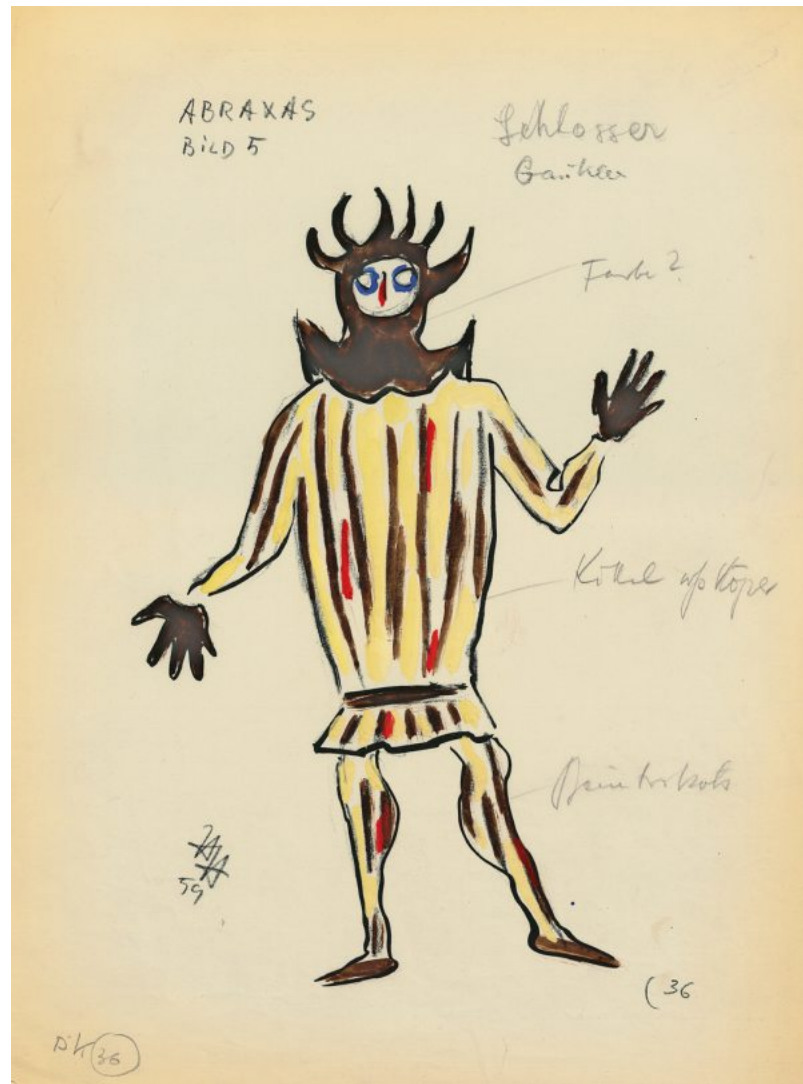 ABRAXAS
BILD 5
Schlosser
Gaukler
Farbe?
Kittel
Beintrikots
59
(36
36